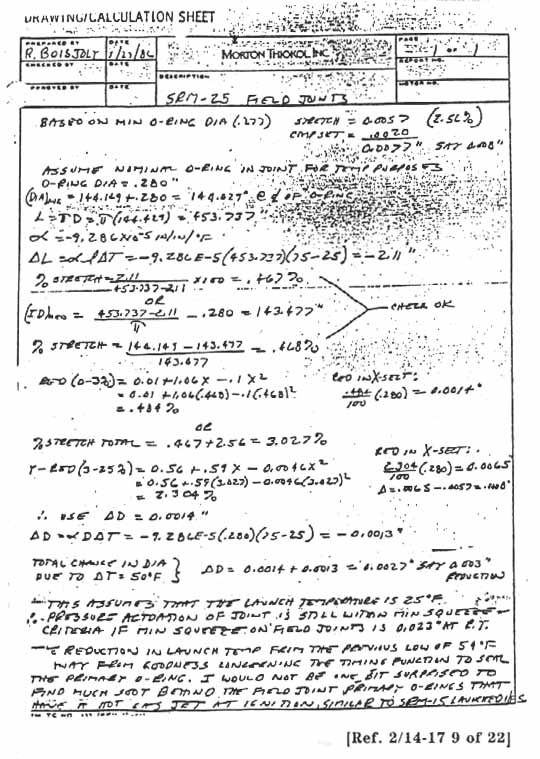 DRAWING/CALCULATION SHEET
PREPARED BY
R. BOISJOLY
DATE
1/27/86
MORTON THIOKOL INC.
PAGE
1 OF 1
CHECKED BY
DATE
REPORT NO.
APPROVED BY
DATE
DESCRIPTION
MOTOR NO.
SRM-25 FIELD JOINTS
BASED ON MIN O-RING DIA (.277) STRETCH = 0.0057 (2.56%)
CMP SET = .0020
0.0077" SAY 0.008"
ASSUME NOMINAL O-RING IN JOINT FOR TEMP PURPOSES
O-RING DIA = .280"
= 144.149 + .280 = 144.429" @ ℄ OF O-RING
L = πD = π(144.429) = 453.737"
∝ = -9.286X10-5 IN/IN/°F
ΔL = ∝LΔT = -9.286E-5(453.737)(75-25) = -2.11"
% STRETCH = 2.11 / 453.737-2.11 X100 = .467%
OR
= 453.737-2.11 / π - .280 = 143.477"
CHECK OK
% STRETCH = 144.149 - 143.477 / 143.477 = .468%
1. RED (0-3%) = 0.01 + 1.06X - .1X²
RED IN X-SECT:
= 0.01 + 1.06(.468) - .1(.468)²
.484/100 (.280) = 0.0014"
= .484%
OR
% STRETCH TOTAL = .467 + 2.56 = 3.027%
RED IN X-SECT:
RED (3-25%) = 0.56 + .59X - 0.0046X²
2.304/100 (.280) = 0.0065
= 0.56 + .59(3.027) - 0.0046(3.027)²
Δ = .0065 - .0057 =
= 2.304%
∴ USE ΔD = 0.0014"
ΔD = ∝DΔT = -9.286E-5(.280)(75-25) = -0.0013"
TOTAL CHANGE IN DIA
DUE TO ΔT = 50°F
ΔD = 0.0014 + 0.0013 = 0.0027" SAY 0.003"
REDUCTION
THIS ASSUMES THAT THE LAUNCH TEMPERATURE IS 25°F
∴ PRESSURE ACTUATION OF JOINT IS STILL WITHIN MIN SQUEEZE
CRITERIA IF MIN SQUEEZE ON FIELD JOINTS IS 0.023" AT R.T.
REDUCTION IN LAUNCH TEMP FROM THE PREVIOUS LOW OF 54°F
WAY FROM GOODNESS CONCERNING THE TIMING FUNCTION TO SEAL
THE PRIMARY O-RING. I WOULD NOT BE ONE BIT SURPRISED TO
FIND MUCH SOOT BEHIND THE FIELD JOINT PRIMARY O-RINGS THAT
HAVE A HOT GAS JET AT IGNITION, SIMILAR TO SRM-15 LAUNCHED
[Ref. 2/14-17 9 of 22]